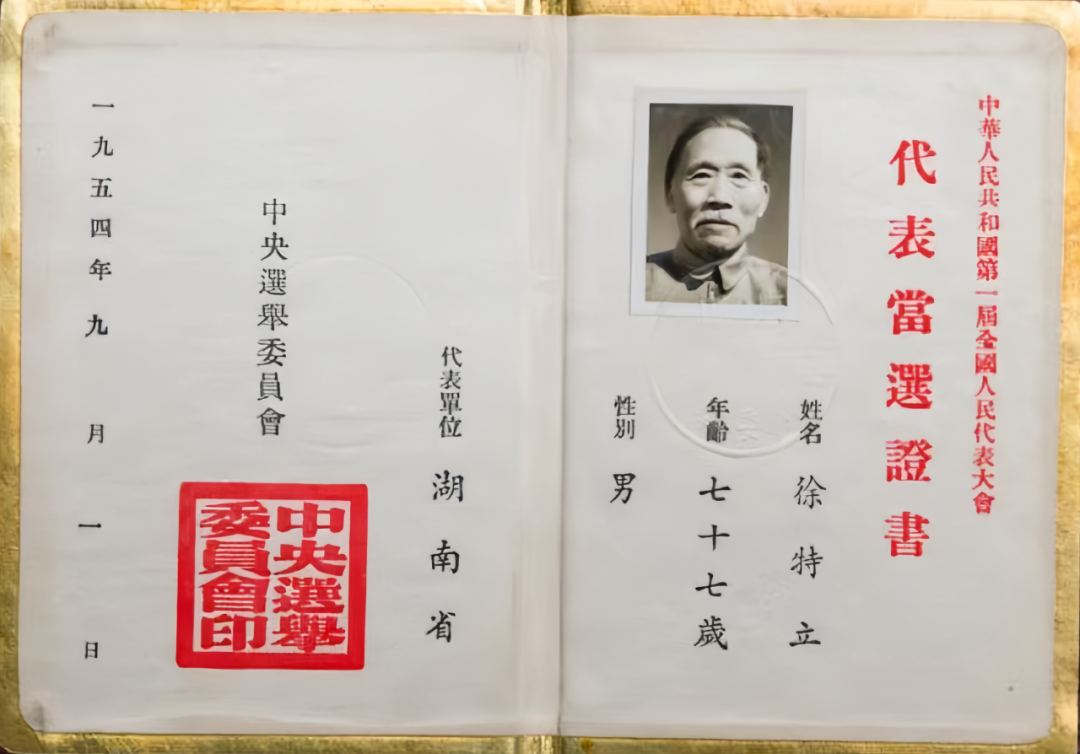 中華人民共和國第一屆全國人民代表大會
代表當選證書
姓名 徐特立
年齡 七十七歲
性別 男
代表單位 湖南省
中央選舉委員會
中央選舉
委員會印
一九五四年九月一日